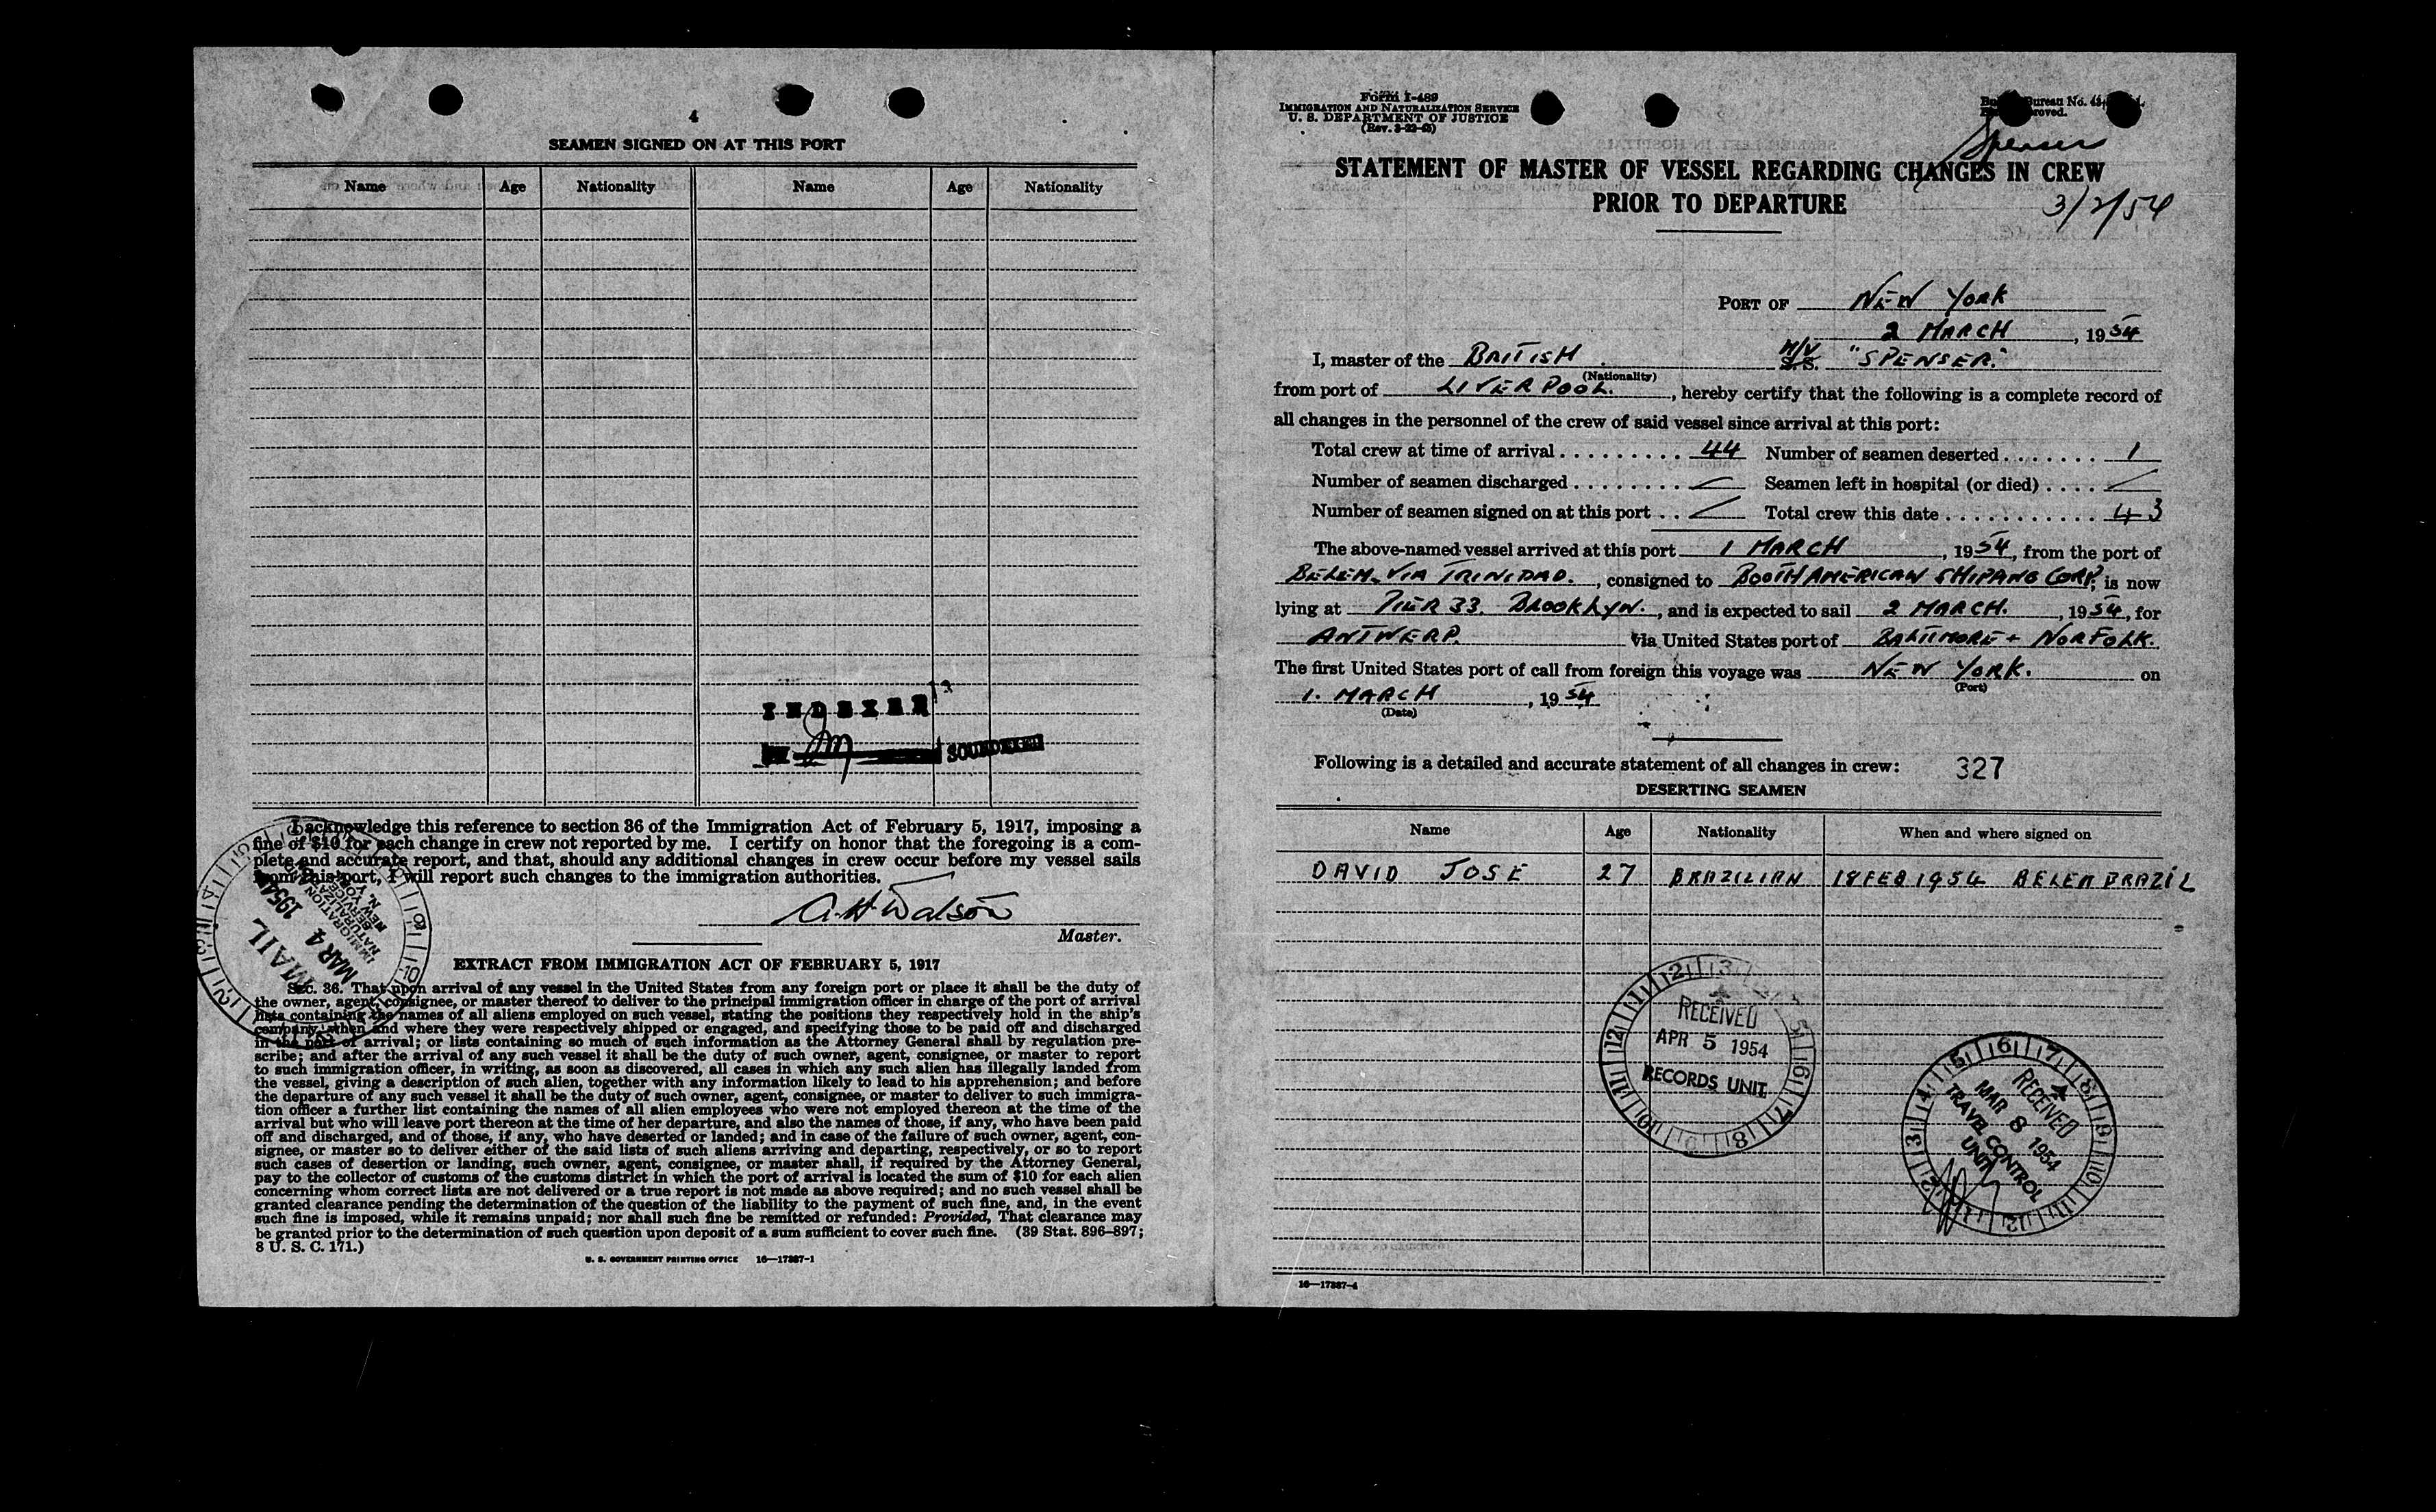 4
SEAMEN SIGNED ON AT THIS PORT
Name Age Nationality Name Age Nationality
INDEXED
BY SOUNDEXED
I acknowledge this reference to section 36 of the Immigration Act of February 5, 1917, imposing a
fine of $10 for each change in crew not reported by me. I certify on honor that the foregoing is a com-
plete and accurate report, and that, should any additional changes in crew occur before my vessel sails
from this port, I will report such changes to the immigration authorities.
A. H. Watson
Master.
MAIL
MAR 4 1954
IMMIGRATION
NATURALIZA
SERVICE
NEW YO
N.Y.
EXTRACT FROM IMMIGRATION ACT OF FEBRUARY 5, 1917
Sec. 36. That upon arrival of any vessel in the United States from any foreign port or place it shall be the duty of
the owner, agent, consignee, or master thereof to deliver to the principal immigration officer in charge of the port of arrival
lists containing the names of all aliens employed on such vessel, stating the positions they respectively hold in the ship's
company, when and where they were respectively shipped or engaged, and specifying those to be paid off and discharged
in the port of arrival; or lists containing so much of such information as the Attorney General shall by regulation pre-
scribe; and after the arrival of any such vessel it shall be the duty of such owner, agent, consignee, or master to report
to such immigration officer, in writing, as soon as discovered, all cases in which any such alien has illegally landed from
the vessel, giving a description of such alien, together with any information likely to lead to his apprehension; and before
the departure of any such vessel it shall be the duty of such owner, agent, consignee, or master to deliver to such immigra-
tion officer a further list containing the names of all alien employees who were not employed thereon at the time of the
arrival but who will leave port thereon at the time of her departure, and also the names of those, if any, who have been paid
off and discharged, and of those, if any, who have deserted or landed; and in case of the failure of such owner, agent, con-
signee, or master so to deliver either of the said lists of such aliens arriving and departing, respectively, or so to report
such cases of desertion or landing, such owner, agent, consignee, or master shall, if required by the Attorney General,
pay to the collector of customs of the customs district in which the port of arrival is located the sum of $10 for each alien
concerning whom correct lists are not delivered or a true report is not made as above required; and no such vessel shall be
granted clearance pending the determination of the question of the liability to the payment of such fine, and, in the event
such fine is imposed, while it remains unpaid; nor shall such fine be remitted or refunded: Provided, That clearance may
be granted prior to the determination of such question upon deposit of a sum sufficient to cover such fine. (39 Stat. 896–897;
8 U. S. C. 171.)
U. S. GOVERNMENT PRINTING OFFICE 16—17387-1
Form I-489
IMMIGRATION AND NATURALIZATION SERVICE
U. S. DEPARTMENT OF JUSTICE
(Rev. 3-22-45)
Bureau No.
Spenser
STATEMENT OF MASTER OF VESSEL REGARDING CHANGES IN CREW
PRIOR TO DEPARTURE
3/2/54
PORT OF NEW YORK
2 MARCH, 1954
I, master of the BRITISH M/V S.S. "SPENSER."
(Nationality)
from port of LIVERPOOL., hereby certify that the following is a complete record of
all changes in the personnel of the crew of said vessel since arrival at this port:
Total crew at time of arrival . . . . . . . . . 44 Number of seamen deserted . . . . . . . 1
Number of seamen discharged . . . . . . . . — Seamen left in hospital (or died) . . . . —
Number of seamen signed on at this port . . — Total crew this date . . . . . . . . . . . 43
The above-named vessel arrived at this port 1 MARCH, 1954, from the port of
BELEM. VIA TRINIDAD., consigned to BOOTH AMERICAN SHIPPING CORP; is now
lying at PIER 33. BROOKLYN., and is expected to sail 2 MARCH., 1954, for
ANTWERP. via United States port of BALTIMORE + NORFOLK.
The first United States port of call from foreign this voyage was NEW YORK. on
(Port)
1. MARCH, 1954
(Date)
Following is a detailed and accurate statement of all changes in crew: 327
DESERTING SEAMEN
Name Age Nationality When and where signed on
DAVID JOSE 27 BRAZILIAN 18 FEB 1954 BELEM BRAZIL
RECEIVED
APR 5 1954
RECORDS UNIT
RECEIVED
MAR 8 1954
TRAVEL CONTROL
UNIT
16—17387-4